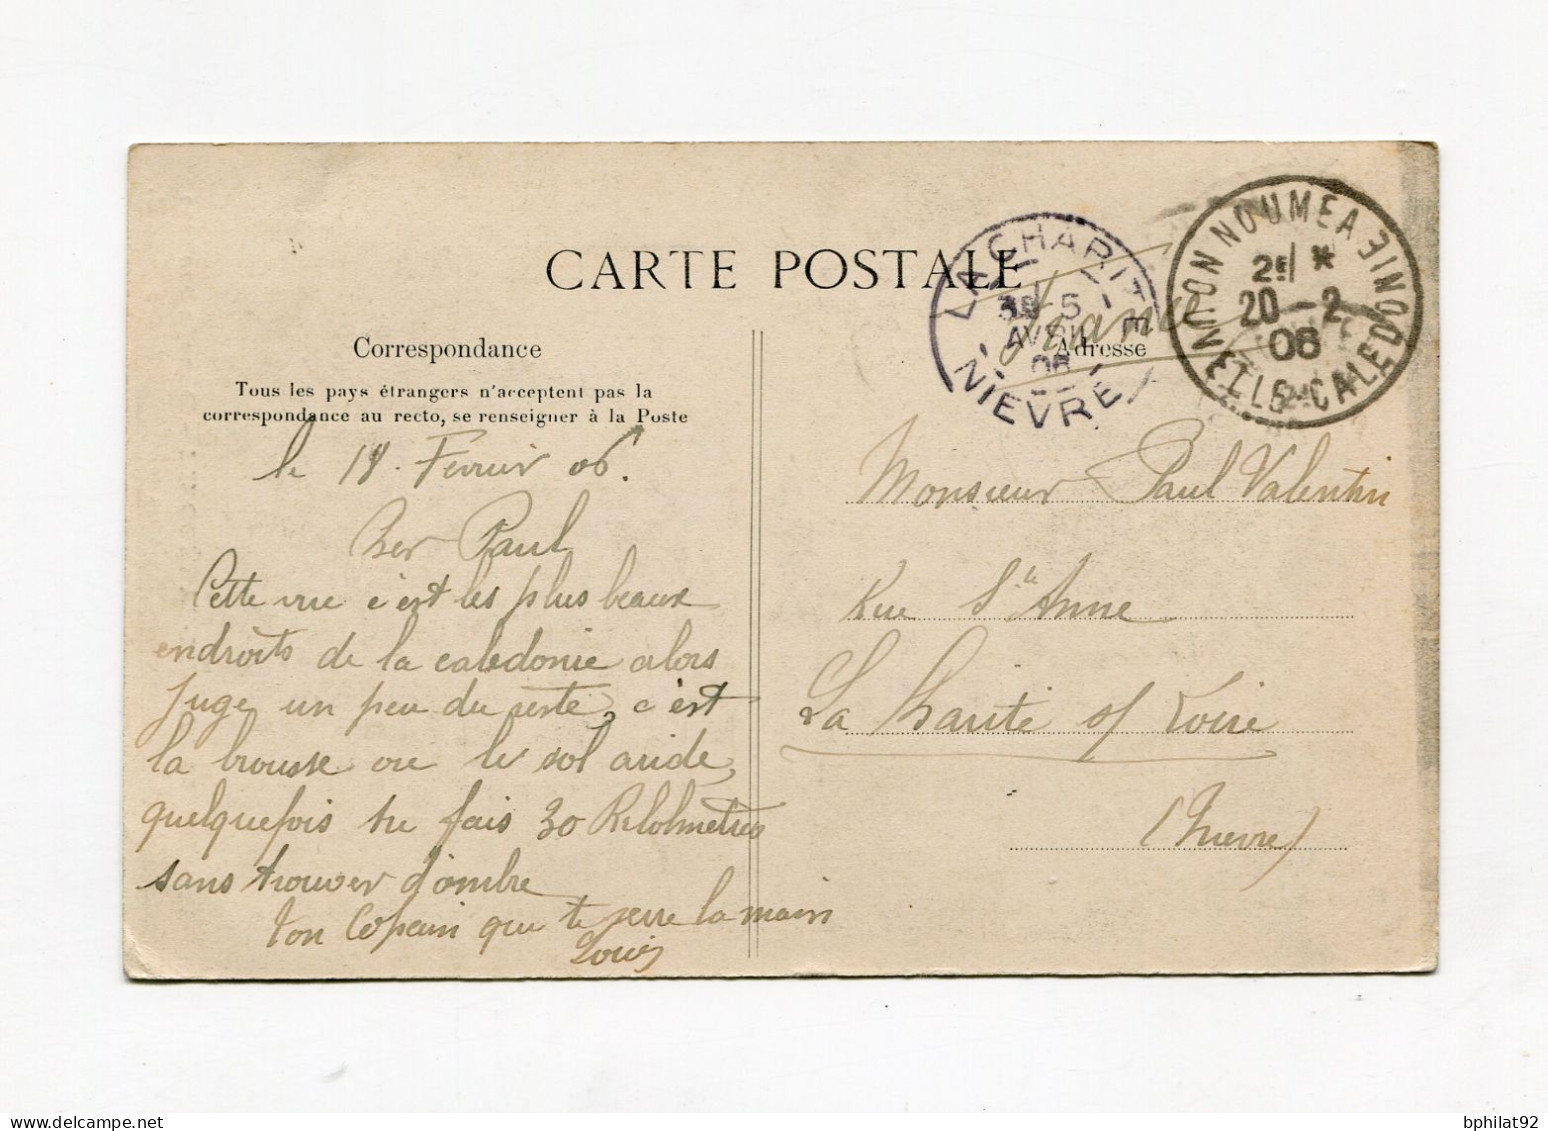 CARTE POSTALE
Correspondance
Tous les pays étrangers n'acceptent pas la
correspondance au recto, se renseigner à la Poste
le 18 Fevrier 06.
Cher Paul
Cette vue c'est les plus beaux
endroits de la calédonie alors
juge un peu du reste, c'est
la brousse ou le sol aride,
quelquefois tu fais 30 Kilomètres
sans trouver d'ombre
Ton Copain que te serre la main
Louis
LA CHARITE
5
AVRIL
06
NIEVRE
France
Adresse
NOUMEA
2E *
20 -2
06
NELLE CALEDONIE
Monsieur Paul Valentin
Rue Ste Anne
La Charité s/ Loire
(Nièvre)
bphilat92